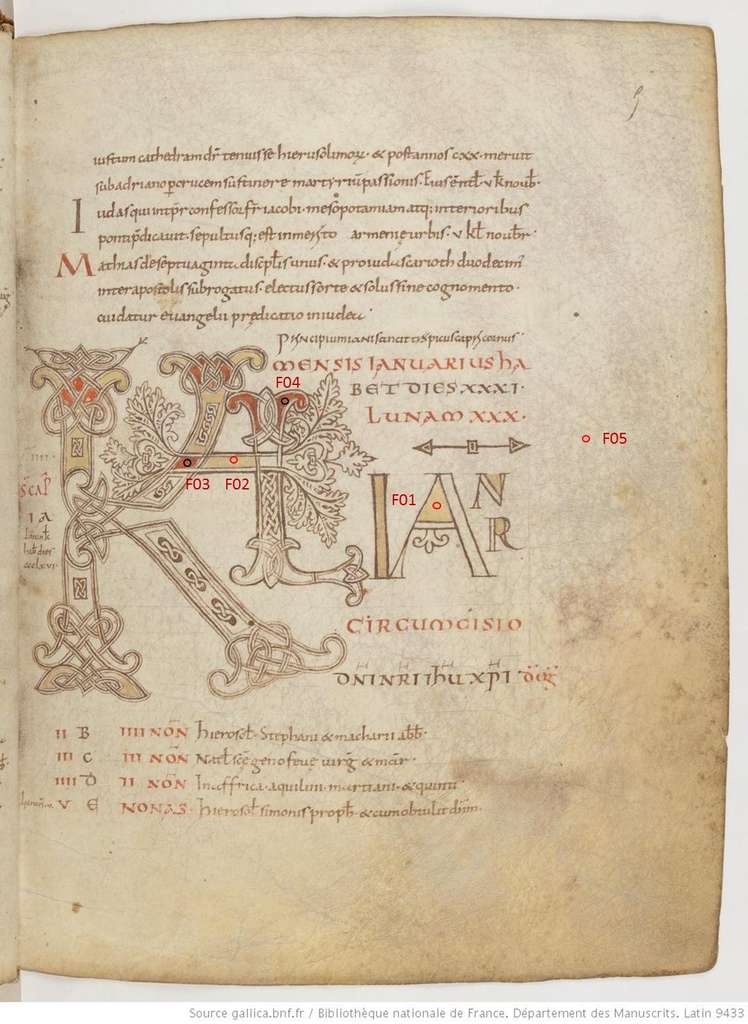 5
iustum cathedram dr̄ tenuisse hierusolimorꝝ · & post annos cxx · meruit
sub adriano ꝑ crucem sustinere martyrium passionis · Eius nat̄l v kl̄ noub̄ ·
Iudas qui intpr̄ confessor fr̄ iacobi · mesopotamiam atq; interioribus
ponti p̄dicauit · sepultusq; est in armenię urbis · v kl̄ noubr̄ ·
Mathias de septuaginta discipl̄is unus · & pro iuda scarioth duodecim̄
inter apostolis subrogatus · electus sorte & solus sine cognomento ·
cui datur euangelii prędicatio in iudea ·
Principium iani
MENSIS IANUARIUS HA
F04
BET DIES XXXI ·
LUNAM XXX ·
F05
K A L IANR
F03 F02 F01
SCAP̄
IA
CIRCUMCISIO
DN̄I N̄RI IH̄U XP̄I
II B IIII NON̄ hierosol̄ · Stephani & macharii abb̄ ·
III C III NON̄ Nat̄l scę genofeuę uirg̃ & mar̄ ·
IIII D II NON̄ In affrica · aquilini · martiani · & quinti
V E NONAS · hierosol̄ simonis proph̄ ·
Source gallica.bnf.fr / Bibliothèque nationale de France, Département des Manuscrits, Latin 9433